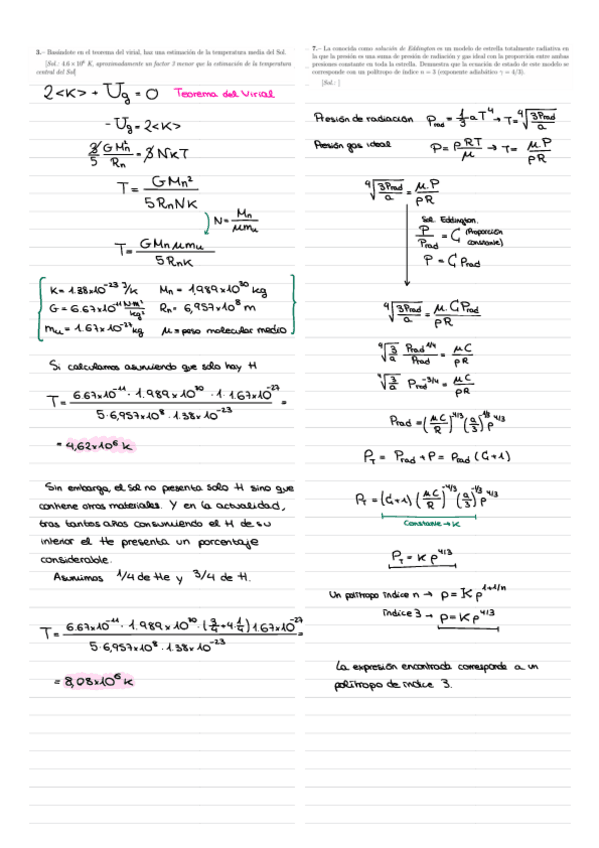 3.– Basándote en el teorema del virial, haz una estimación de la temperatura media del Sol.
[Sol.: 4.6 × 10⁶ K, aproximadamente un factor 3 menor que la estimación de la temperatura
central del Sol]
2<K> + Ug = 0 Teorema del Virial
- Ug = 2<K>
3/5 GM²n/Rn = 3NKT
T = GMn²/5RnNK
N = Mn/μmu
T = GMnμmu/5RnK
K = 1.38×10⁻²³ J/K Mn = 1,989×10³⁰ kg
G = 6.67×10⁻¹¹ N·m²/kg² Rn = 6,957×10⁸ m
mu = 1.67×10⁻²⁷ kg μ = peso molecular medio
Si calculamos asumiendo que solo hay H
T = 6.67×10⁻¹¹ · 1.989×10³⁰ · 1 · 1.67×10⁻²⁷ / 5·6,957×10⁸ · 1.38×10⁻²³ =
= 4,62×10⁶ K
Sin embargo, el Sol no presenta solo H sino que
contiene otros materiales. Y en la actualidad,
tras tantos años consumiendo el H de su
interior el He presenta un porcentaje
considerable.
Asumimos 1/4 de He y 3/4 de H.
T = 6.67×10⁻¹¹ · 1.989×10³⁰ · (3/4 + 4·1/4) 1.67×10⁻²⁷ / 5·6,957×10⁸ · 1.38×10⁻²³ =
= 8,08×10⁶ K
7.– La conocida como solución de Eddington es un modelo de estrella totalmente radiativa en
la que la presión es una suma de presión de radiación y gas ideal con la proporción entre ambas
presiones constante en toda la estrella. Demuestra que la ecuación de estado de este modelo se
corresponde con un polítropo de índice n = 3 (exponente adiabático γ = 4/3).
[Sol.: ]
Presión de radiación Prad = 1/3 aT⁴ → T = ⁴√(3Prad/a)
Presión gas ideal P = ρRT/μ → T = μP/ρR
⁴√(3Prad/a) = μ·P/ρR
Sol. Eddington.
P/Prad = C (Proporción
constante)
P = C Prad
⁴√(3Prad/a) = μ·C Prad/ρR
⁴√(3/a) Prad^1/4/Prad = μC/ρR
⁴√(3/a) Prad^-3/4 = μC/ρR
Prad = (μC/R)^4/3 (a/3)^1/3 ρ^4/3
PT = Prad + P = Prad (C+1)
PT = (C+1) (μC/R)^-4/3 (a/3)^-1/3 ρ^4/3
Constante → K
PT = K ρ^4/3
Un polítropo índice n → p = K ρ^1+1/n
índice 3 → p = K ρ^4/3
La expresión encontrada corresponde a un
polítropo de índice 3.